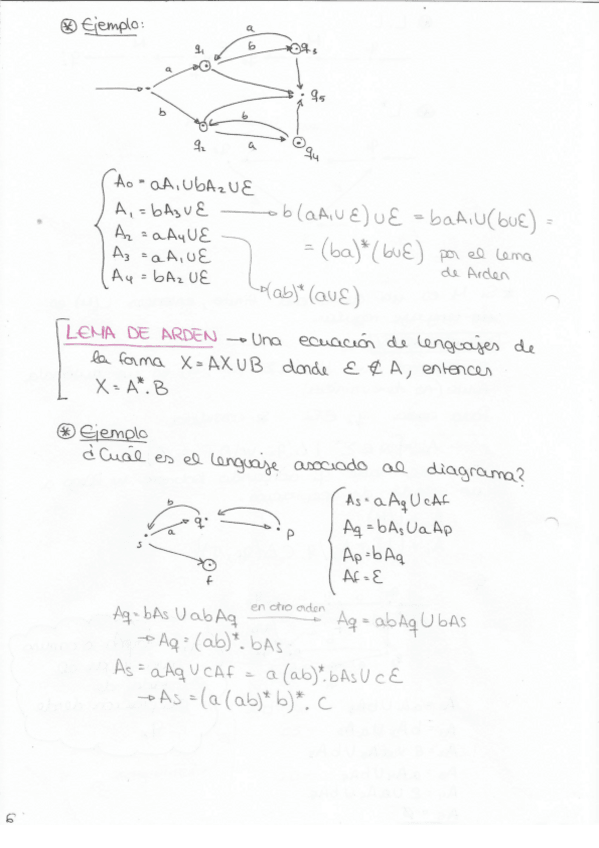 ⊛ Ejemplo:
a
q1 b q3
a
q5
b b
q2 a q4
A0 = aA1 ∪ bA2 ∪ Ɛ
A1 = bA3 ∪ Ɛ → b(aA1 ∪ Ɛ) ∪ Ɛ = baA1 ∪ (b∪Ɛ) =
A2 = aA4 ∪ Ɛ = (ba)* (b∪Ɛ) por el lema
A3 = aA1 ∪ Ɛ de Arden
A4 = bA2 ∪ Ɛ → (ab)* (a∪Ɛ)
LEMA DE ARDEN → Una ecuación de lenguajes de
la forma X = AX ∪ B donde Ɛ ∉ A, entonces
X = A*.B
⊛ Ejemplo
¿Cuál es el lenguaje asociado al diagrama?
b q
s a p
f
As = aAq ∪ cAf
Aq = bAs ∪ aAp
Ap = bAq
Af = Ɛ
Aq = bAs ∪ abAq en otro orden → Aq = abAq ∪ bAs
→ Aq = (ab)*. bAs
As = aAq ∪ cAf = a(ab)*. bAs ∪ cƐ
→ As = (a(ab)* b)*. c
6